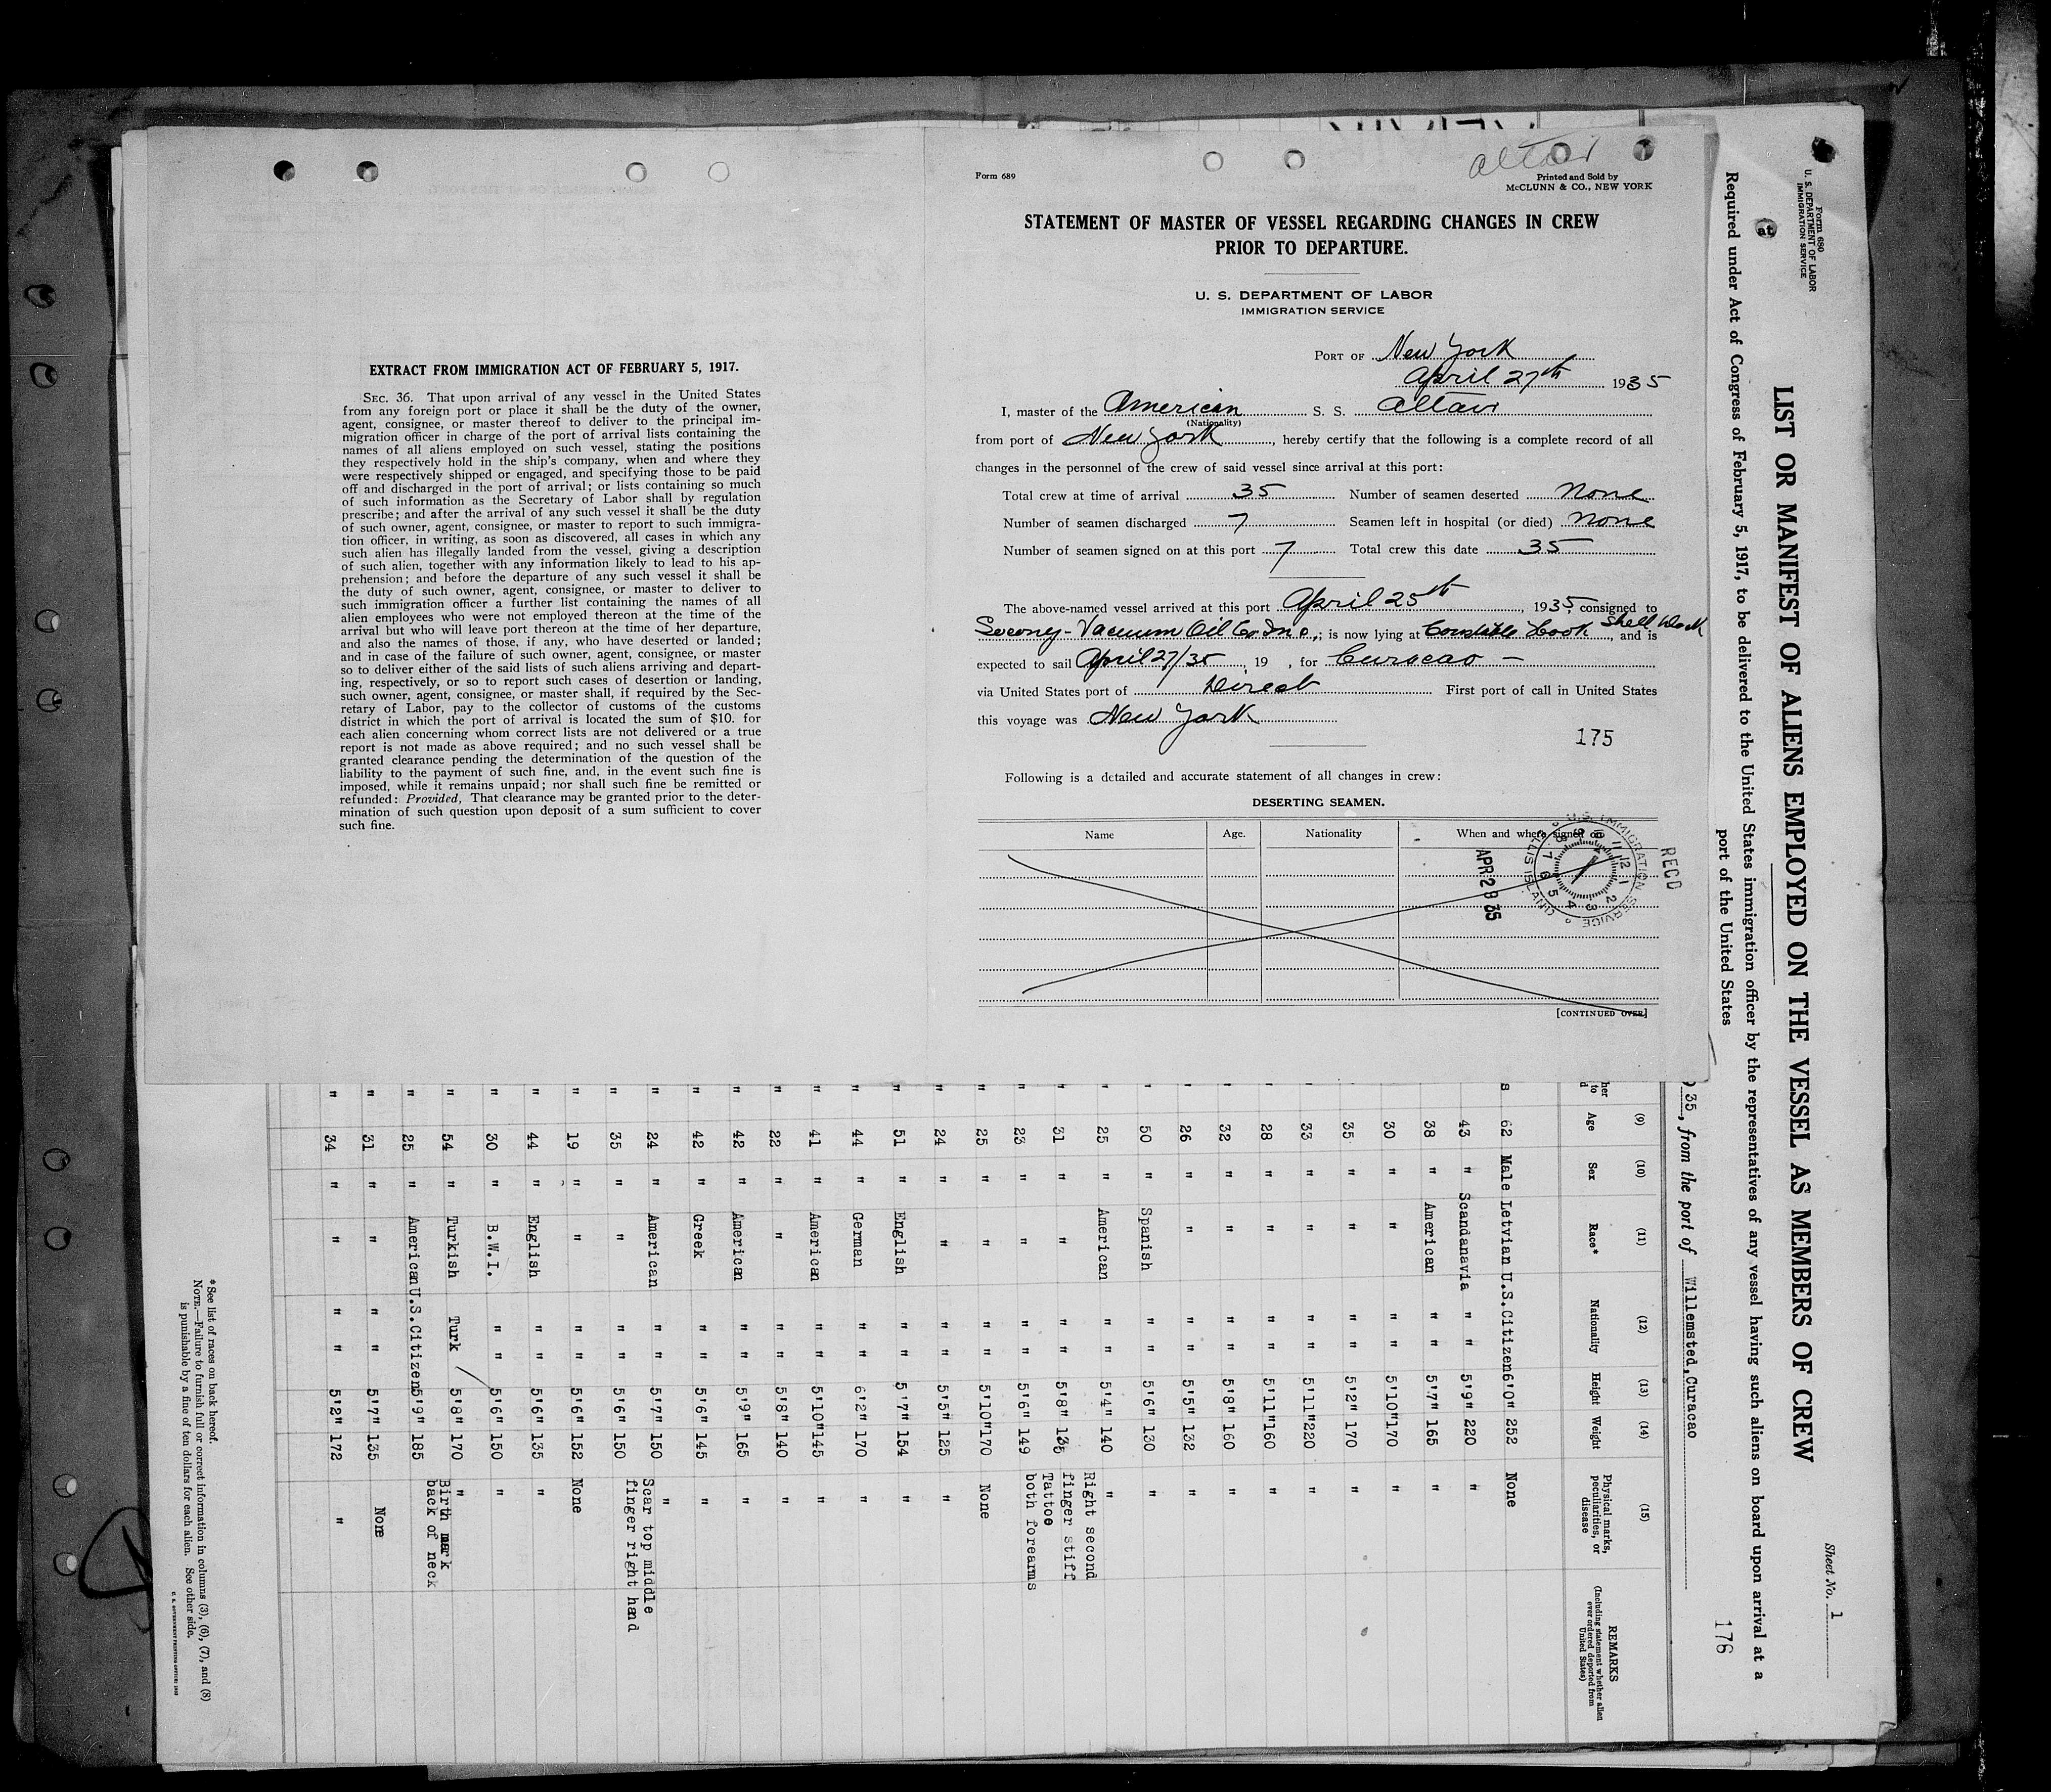 EXTRACT FROM IMMIGRATION ACT OF FEBRUARY 5, 1917.
SEC. 36. That upon arrival of any vessel in the United States
from any foreign port or place it shall be the duty of the owner,
agent, consignee, or master thereof to deliver to the principal im-
migration officer in charge of the port of arrival lists containing the
names of all aliens employed on such vessel, stating the positions
they respectively hold in the ship's company, when and where they
were respectively shipped or engaged, and specifying those to be paid
off and discharged in the port of arrival; or lists containing so much
of such information as the Secretary of Labor shall by regulation
prescribe; and after the arrival of any such vessel it shall be the duty
of such owner, agent, consignee, or master to report to such immigra-
tion officer, in writing, as soon as discovered, all cases in which any
such alien has illegally landed from the vessel, giving a description
of such alien, together with any information likely to lead to his ap-
prehension; and before the departure of any such vessel it shall be
the duty of such owner, agent, consignee, or master to deliver to
such immigration officer a further list containing the names of all
alien employees who were not employed thereon at the time of the
arrival but who will leave port thereon at the time of her departure,
and also the names of those, if any, who have deserted or landed;
and in case of the failure of such owner, agent, consignee, or master
so to deliver either of the said lists of such aliens arriving and depart-
ing, respectively, or so to report such cases of desertion or landing,
such owner, agent, consignee, or master shall, if required by the Sec-
retary of Labor, pay to the collector of customs of the customs
district in which the port of arrival is located the sum of $10. for
each alien concerning whom correct lists are not delivered or a true
report is not made as above required; and no such vessel shall be
granted clearance pending the determination of the question of the
liability to the payment of such fine, and, in the event such fine is
imposed, while it remains unpaid; nor shall such fine be remitted or
refunded: Provided, That clearance may be granted prior to the deter-
mination of such question upon deposit of a sum sufficient to cover
such fine.
Altair
Form 689
Printed and Sold by
McCLUNN & CO., NEW YORK
STATEMENT OF MASTER OF VESSEL REGARDING CHANGES IN CREW
PRIOR TO DEPARTURE.
U. S. DEPARTMENT OF LABOR
IMMIGRATION SERVICE
PORT OF New York
April 27th 1935
I, master of the American S. S. Altair
(Nationality)
from port of New York, hereby certify that the following is a complete record of all
changes in the personnel of the crew of said vessel since arrival at this port:
Total crew at time of arrival 35 Number of seamen deserted None
Number of seamen discharged 7 Seamen left in hospital (or died) None
Number of seamen signed on at this port 7 Total crew this date 35
The above-named vessel arrived at this port April 25th, 1935, consigned to
Socony-Vacuum Oil Co. Inc.; is now lying at Constable Hook Shell Dock, and is
expected to sail April 27/35, 19 , for Curacao -
via United States port of Direct First port of call in United States
this voyage was New York
175
Following is a detailed and accurate statement of all changes in crew:
DESERTING SEAMEN.
Name Age. Nationality When and where signed on
U.S. IMMIGRATION SERVICE
ELLIS ISLAND
RECD
APR 29 35
[CONTINUED OVER]
Form 680
U. S. DEPARTMENT OF LABOR
IMMIGRATION SERVICE
Sheet No. 1
LIST OR MANIFEST OF ALIENS EMPLOYED ON THE VESSEL AS MEMBERS OF CREW
Required under Act of Congress of February 5, 1917, to be delivered to the United States immigration officer by the representatives of any vessel having such aliens on board upon arrival at a
port of the United States
176
35, from the port of Willemsted,Curacao
(9) (10) (11) (12) (13) (14) (15)
Age Sex Race* Nationality Height Weight Physical marks, peculiarities, or disease
REMARKS
(Including statement whether alien
ever ordered deported from
United States)
62 Male Letvian U.S.Citizen 6'0" 252 None
43 " Scandanavia " " 5'9" 220 "
38 " American " " 5'7" 165 "
30 " " " " 5'10" 170 "
35 " " " " 5'2" 170 "
33 " " " " 5'11" 220 "
28 " " " " 5'11" 160 "
32 " " " " 5'8" 160 "
26 " " " " 5'5" 132 "
50 " Spanish " " 5'6" 130 "
25 " American " " 5'4" 140 "
31 " " " " 5'8" Right second finger stiff
23 " " " " 5'6" 149 Tattoe both forearms
25 " " " " 5'10" 170 None
24 " " " " 5'5" 125 "
51 " English " " 5'7" 154 "
44 " German " " 6'2" 170 "
41 " American " " 5'10" 145 "
22 " " " " 5'8" 140 "
42 " American " " 5'9" 165 "
42 " Greek " " 5'6" 145 "
24 " American " " 5'7" 150 "
35 " " " " 5'6" 150 Scar top middle finger right hand
19 " " " " 5'6" 152 None
44 " English " " 5'6" 135 "
30 " B.W.I. " " 5'6" 150 "
54 " Turkish Turk 5'8" 170 "
25 " American U.S.Citizen 5'9" 185 Birth mark back of neck
31 " " " " 5'7" 135 None
34 " " " " 5'2" 172 "
*See list of races on back hereof.
NOTE.—Failure to furnish full or correct information in columns (3), (6), (7), and (8)
is punishable by a fine of ten dollars for each alien. See other side.